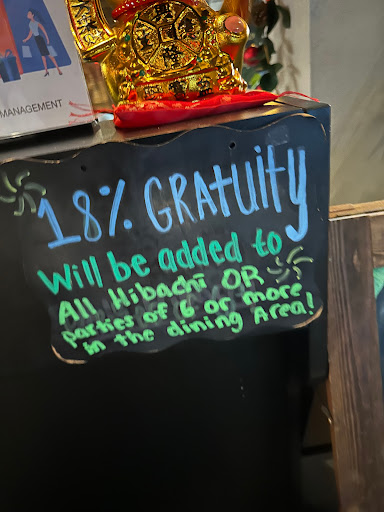 MANAGEMENT
18% GRAtuity
Will be added to
All Hibachi OR
parties of 6 or more
in the dining Area!